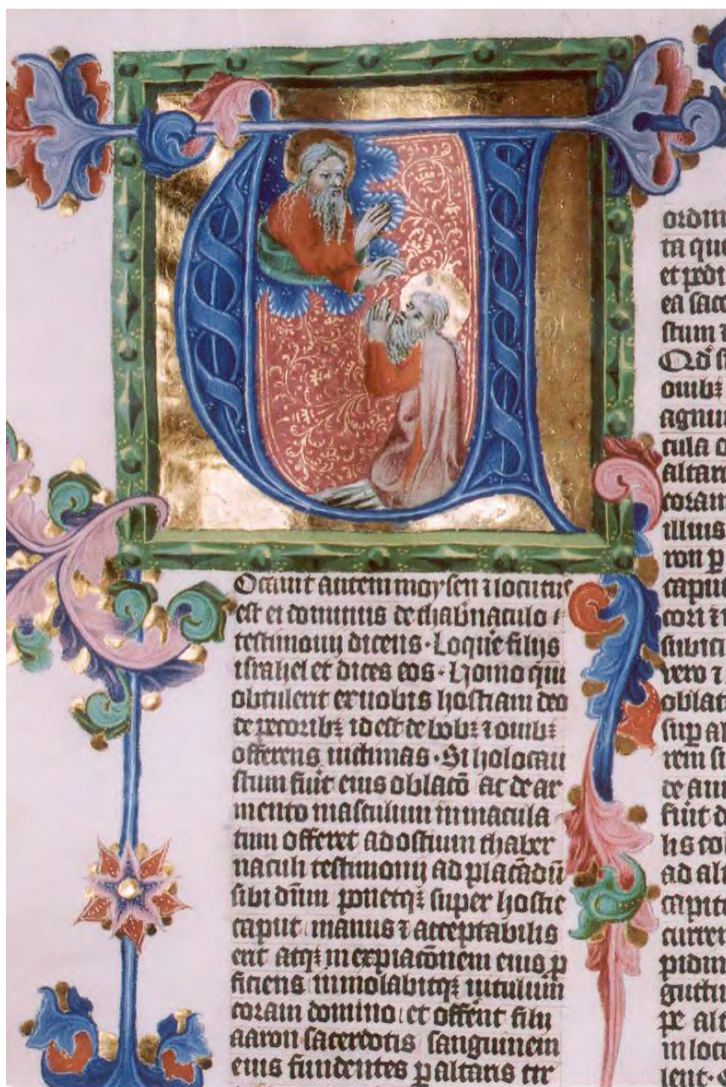 U
Ocauit autem moysen ⁊ locutus
est ei dominus de thab̉naculo
testimonij dicens · Loque᷑ filijs
israhel et dices eos · Homo qui
obtulerit ex uobis hostiam deo
de pecoribꝫ id est de bobꝫ ⁊ ouibꝫ
offerens uictimas · Si holocau
stum fuĩt eius oblacō ac de ar
mento masculum inmacula
tum offeret ad ostium thaber
naculi testimonij ad placādū
sibi dn̄m ponetqꝫ super hostie
caput manus ⁊ acceptabilis
erit atqꝫ in expiacōnem eius ꝓ
ficiens inmolabitqꝫ uitulum
coram domino et offerēt filij
aaron sacerdotis sanguinem
eius fundentes ꝑ altaris cir
ta que
ea sac
stum ⁊
ouibꝫ
cula o
altar
illius
ron ꝑ
vero ⁊
oblac
ad alt
in loc
lent ·